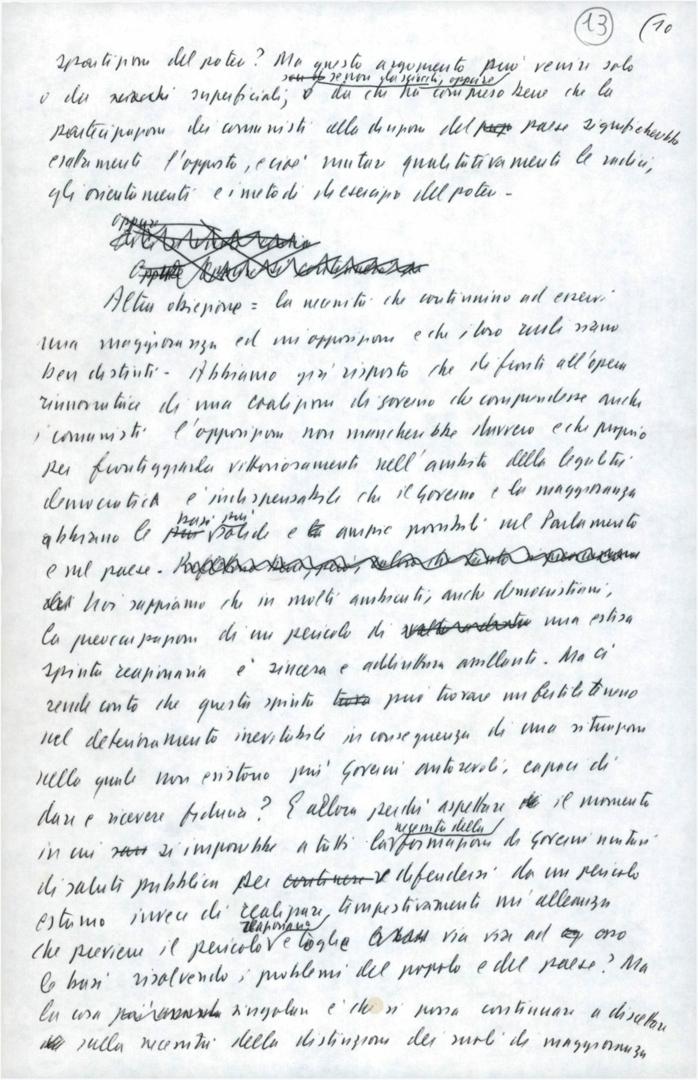 13 (10
spartizioni del potere? Ma questo argomento può venire solo
se non da sciocchi, oppure
o da superficiali, o da chi ha compreso bene che la
partecipazione dei comunisti alla direzione del paese significherebbe
esattamente l'opposto, e cioè mutar qualitativamente le radici,
gli orientamenti e i metodi di esercizio del potere -
oppure
Altra obiezione = la necessità che continuino ad esservi
una maggioranza ed un'opposizione e che i loro ruoli siano
ben distinti - Abbiamo già risposto che di fronte all'opera
rinnovatrice di una coalizione di governo che comprendesse anche
i comunisti l'opposizione non mancherebbe davvero e che proprio
per fronteggiarla vittoriosamente nell'ambito della legalità
democratica è indispensabile che il Governo e la maggioranza
basi più
abbiano le solide e ampie possibili nel Parlamento
e nel paese -
Noi sappiamo che in molti ambienti, anche democristiani,
la preoccupazione di un pericolo di una estesa
spinta reazionaria è sincera e addirittura assillante. Ma ci si
rende conto che questa spinta può trovare un fertile terreno
nel deterioramento inevitabile in conseguenza di una situazione
nella quale non esistono più Governi autorevoli, capaci di
dare e ricevere fiducia? E allora perché aspettare il momento
necessità della
in cui si imporrebbe a tutti la formazione di Governi unitari
di salute pubblica per difendersi da un pericolo
estremo invece di realizzare tempestivamente un'alleanza
reazionario
che previene il pericolo e toglie via via ad esso
le basi risolvendo i problemi del popolo e del paese? Ma
la cosa singolare è che si possa continuare a discettare
sulla necessità della distinzione dei ruoli di maggioranza